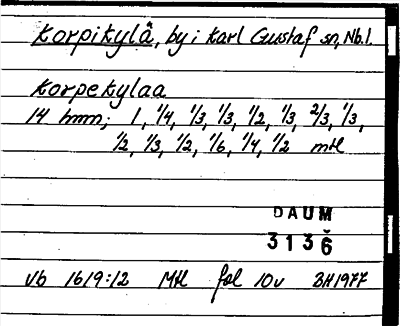 Korpikylä, by i Karl Gustaf sn, Nb.l.
Korpekylaa
14 hmn; 1, 1/4, 1/3, 1/3, 1/2, 1/3, 2/3, 1/3,
1/2, 1/3, 1/2, 1/6, 1/4, 1/2 mtl
DAUM
3136
Vb 1619:12 Mtl fol 10v BH1977